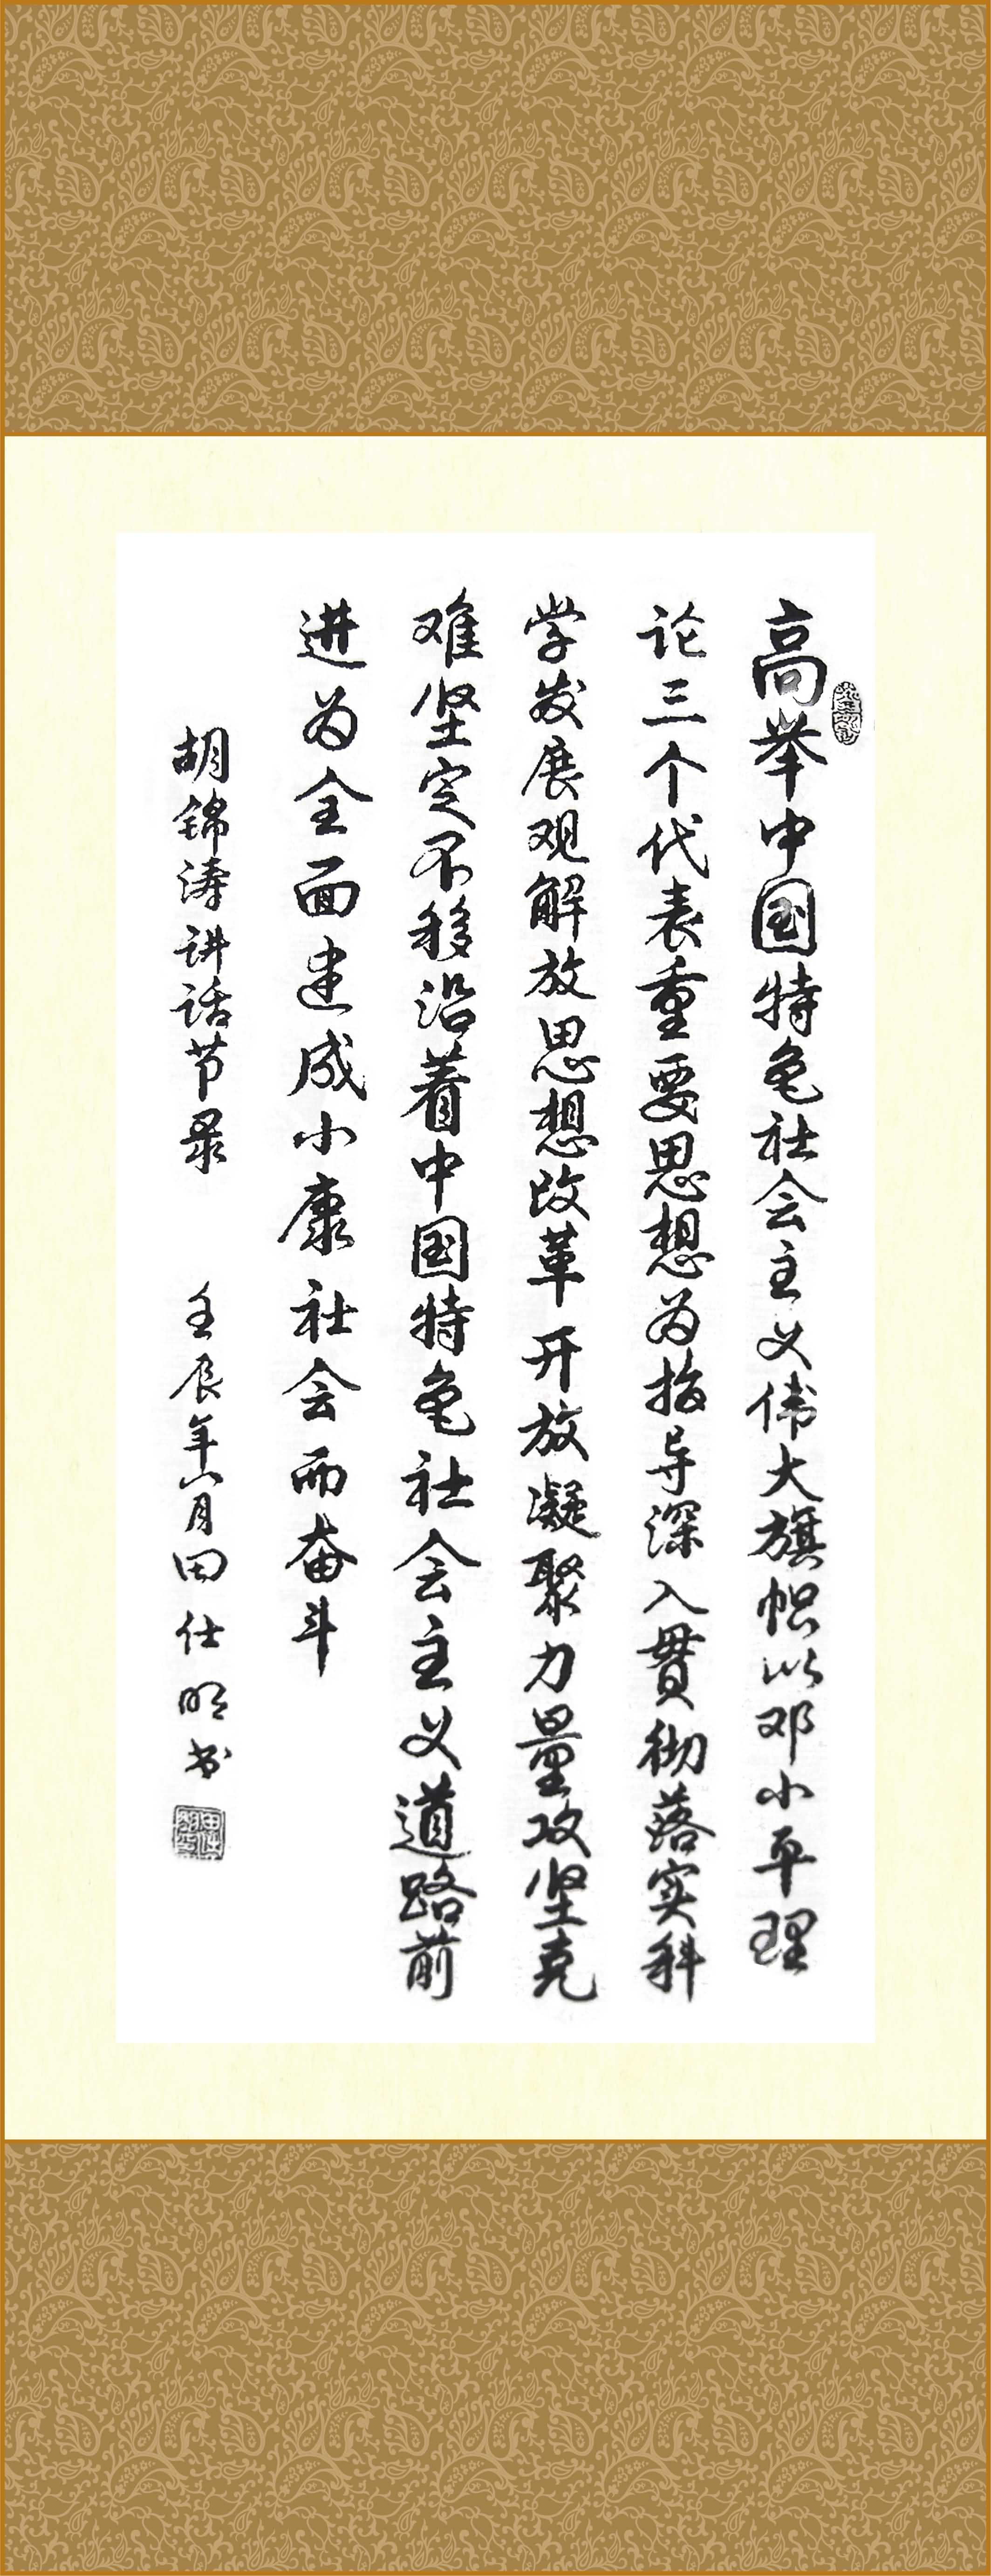 高举中国特色社会主义伟大旗帜以邓小平理
论三个代表重要思想为指导深入贯彻落实科
学发展观解放思想改革开放凝聚力量攻坚克
难坚定不移沿着中国特色社会主义道路前
进为全面建成小康社会而奋斗
胡锦涛讲话节录 壬辰年八月田仕明书